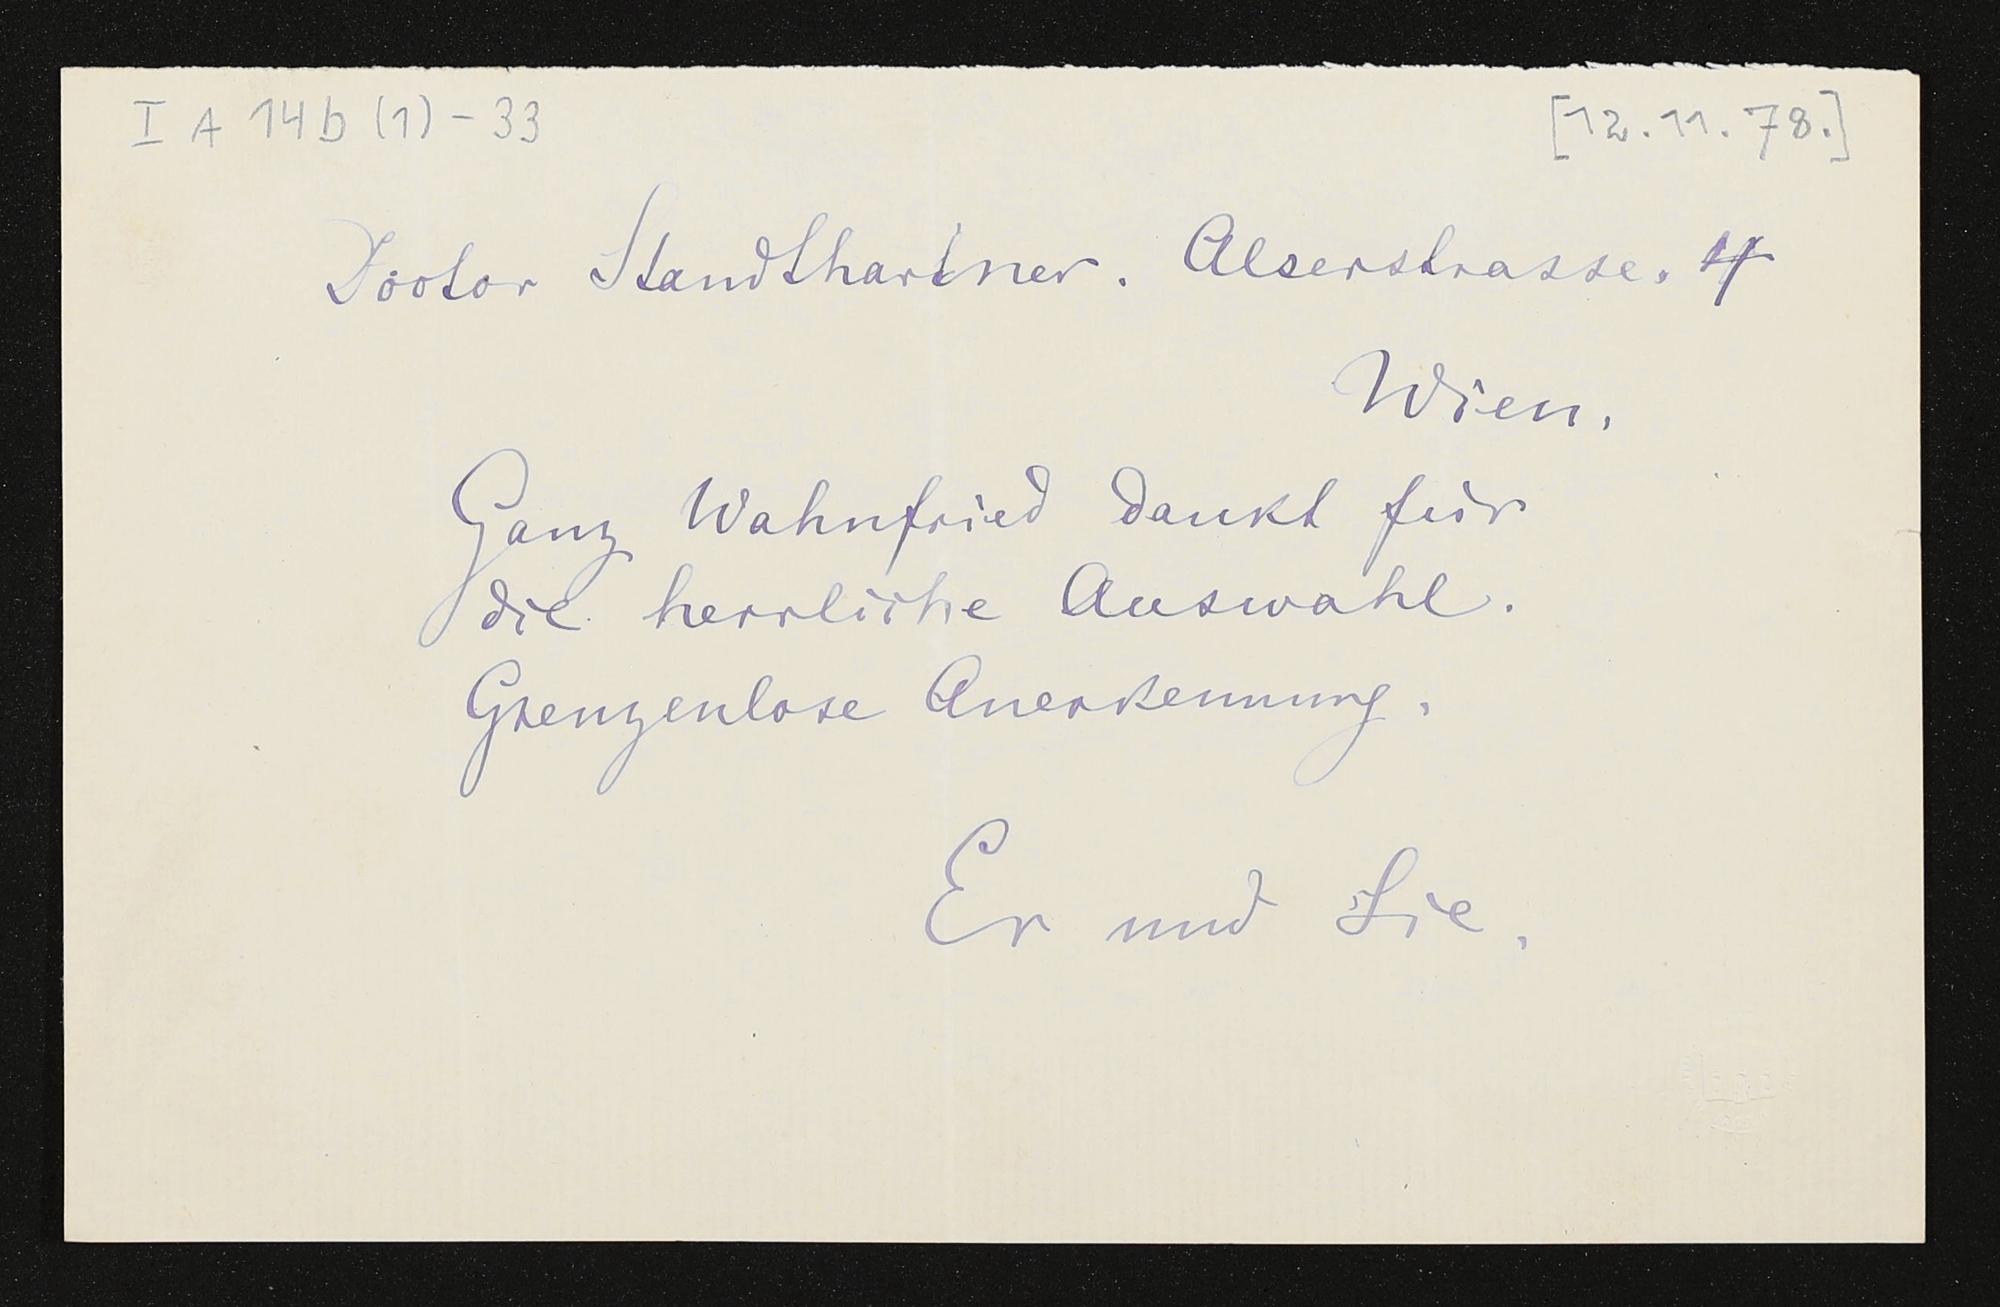 I A 14b (1) - 33
[12.11.78.]
Doctor Standthartner. Alserstrasse. 4
Wien.
Ganz Wahnfried dankt für
die herrliche Auswahl.
Grenzenlose Anerkennung.
Er und Sie.